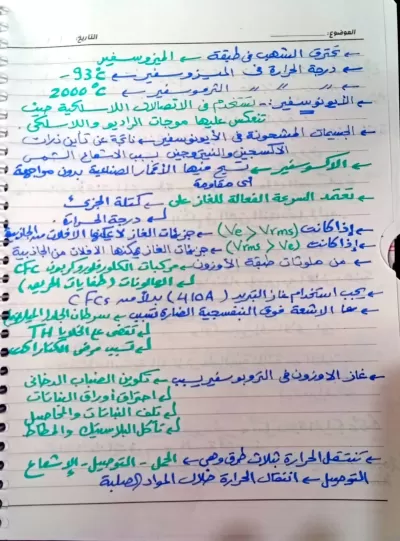 الموضوع: التاريخ:
← تحترق الشهب في طبقة ← الميزوسفير
← درجة الحرارة في الميزوسفير ← 93°C -
← " " " الثرموسفير ← 2000°C
← الأيونوسفير:- تستخدم في الاتصالات اللاسلكية حيث
تنعكس عليها موجات الراديو واللاسلكي.
← الجسيمات المشحونة في الأيونوسفير ← ناتجة عن تأين ذرات
الأكسجين والنيتروجين بسبب الاشعاع الشمسي
← الاكسوسفير ← تسبح فيها الأقمار الصناعية بدون مواجهة
أي مقاومة
← تعتمد السرعة الفعالة للغاز على ← كتلة الجزئ
درجة الحرارة
← إذا كانت (Ve > Vrms) ← جزيئات الغاز لا يمكنها الافلات من الجاذبية
← إذا كانت (Vrms > Ve) ← جزيئات الغاز يمكنها الافلات من الجاذبية
← من ملوثات طبقة الأوزون ← مركبات الكلوروفلوروكربون CFC
الهالونات (طفايات الحريق)
← يجب استخدام غاز التبريد (410A) بدلاً من CFCs
← الاشعة فوق البنفسجية الضارة تسبب ← سرطان الجلد
تقضي على الخلايا TH
تسبب مرض الكتاراكت
← غاز الاوزون في التروبوسفير يسبب ← تكوين الضباب الدخاني
احتراق أوراق النباتات
تلف النباتات والمحاصيل
تآكل البلاستيك والمطاط
← تنتقل الحرارة بثلاث طرق وهي ← الحمل - التوصيل - الإشعاع
التوصيل ← انتقال الحرارة خلال المواد الصلبة